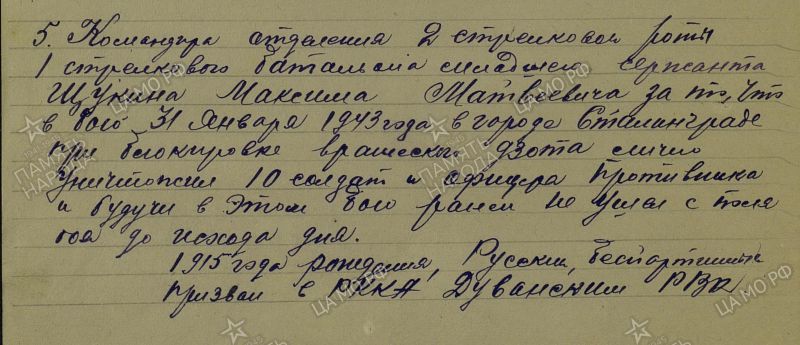 5. Командира отделения 2 стрелковой роты
1 стрелкового батальона младшего сержанта
Щукина Максима Матвеевича за то, что
в бою 31 января 1943 года в городе Сталинграде
при блокировке вражеского дзота лично
уничтожил 10 солдат и офицера противника
и будучи в этом бою ранен не ушел с поля
боя до исхода дня.
1915 года рождения, Русский, беспартийный
призван в РККА Дуванским РВК.